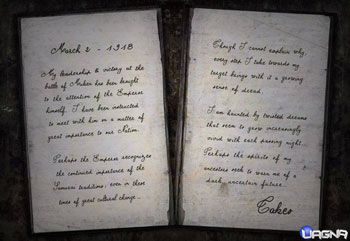 March 2 - 1918
My leadership & victory at the
battle of Mukden has been brought
to the attention of the Emperor
himself. I have been instructed
to meet with him on a matter of
great importance to our Nation.
Perhaps the Emperor recognizes
the continued importance of the
Samurai traditions even in these
times of great cultural change...
Though I cannot explain why,
every step I take towards my
target brings with it a growing
sense of dread.
I am haunted by twisted dreams
that seem to grow increasingly
vivid with each passing night...
Perhaps the spirits of my
ancestors seek to warn me of a
dark, uncertain future.
Takeo
UAGNA